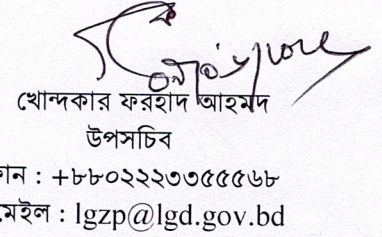 খোন্দকার ফরহাদ আহমদ
উপসচিব
: +৮৮০২২২৩৩৫৫৫৬৮
: lgzp@lgd.gov.bd